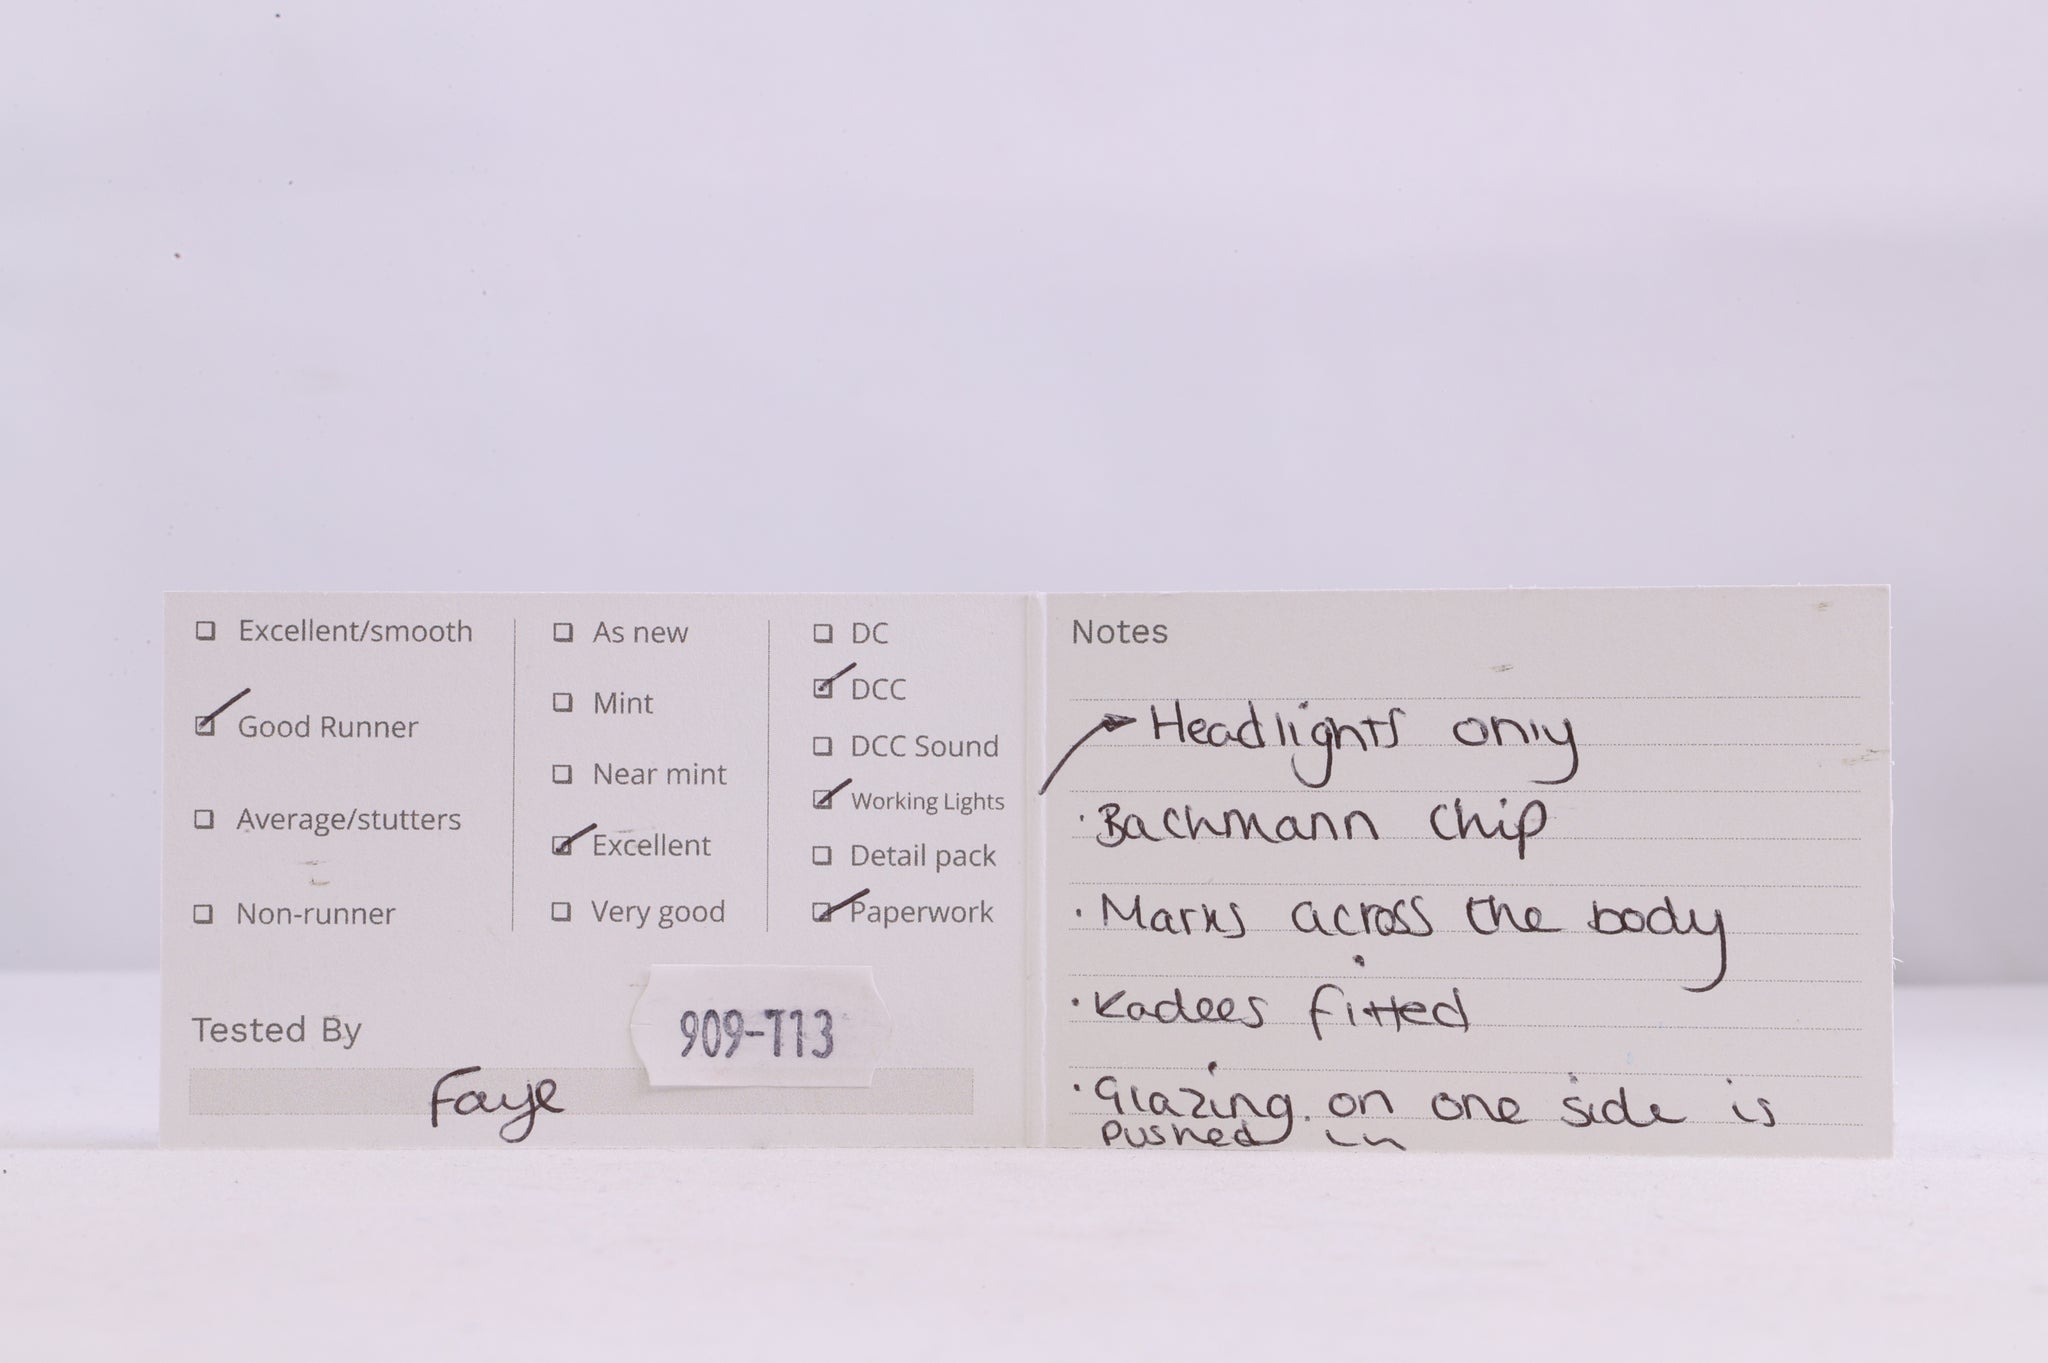 ☐ Excellent/smooth
☑ Good Runner
☐ Average/stutters
☐ Non-runner
☐ As new
☐ Mint
☐ Near mint
☑ Excellent
☐ Very good
☐ DC
☑ DCC
☐ DCC Sound
☑ Working Lights
☐ Detail pack
☑ Paperwork
Tested By
909-T13
Faye
Notes
→ Headlights only
· Bachmann chip
· Marks across the body
· Kadees fitted
· Glazing on one side is
pushed in